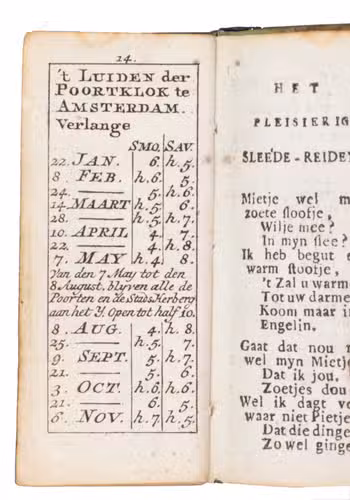 14.
't LUIDEN der
POORTKLOK te
AMSTERDAM.
Verlange
SMO. SAV.
22. JAN. 6. h.5.
8 FEB. h.6. 5.
24. —— 5. h.6.
14 MAART h.5. 6.
28. —— h.5. h.7.
10. APRIL 4. 7.
22. —— 4. h.8.
7. MAY h.4. 8.
Van den 7 May tot den
8 August, blyven alle de
Poorten en de Stads Herberg
aan het Y. Open tot half 10.
8. AUG. 4. h.8.
25. —— h.5. 7.
9. SEPT. 5. h.7.
21. —— 5. 6.
3. OCT. h.6. h.6.
21. —— 6. 5.
6. NOV. h.7. h.5.
HET
PLEISIERIG
SLEEDE-REIDEN
Mietje wel m
zoete sloofje,
Wilje mee?
In myn slee?
Ik heb begut e
warm stoofje,
't Zal u warm
Tot uw darme
Koom maar i
Engelin.
Gaat dat nou n
wel myn Mietj
Dat ik jou,
Zoetjes dou
Wel ik dagt v
waar niet Pietje
Dat die dinge
Zo wel ginge